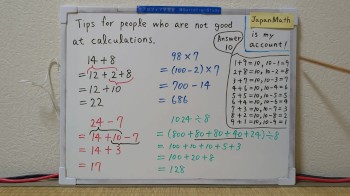 Tips for people who are not good
at calculations.
JapanMath
is my
account!
14 + 8
= 12 + 2 + 8
= 12 + 10
= 22
98 × 7
= (100 - 2) × 7
= 700 - 14
= 686
24 - 7
= 14 + 10 - 7
= 14 + 3
= 17
1024 ÷ 8
= (800 + 80 + 80 + 40 + 24) ÷ 8
= 100 + 10 + 10 + 5 + 3
= 100 + 20 + 8
= 128
Answer
10
1 + 9 = 10, 10 - 1 = 9
2 + 8 = 10, 10 - 2 = 8
3 + 7 = 10, 10 - 3 = 7
4 + 6 = 10, 10 - 4 = 6
5 + 5 = 10, 10 - 5 = 5
6 + 4 = 10, 10 - 6 = 4
7 + 3 = 10, 10 - 7 = 3
8 + 2 = 10, 10 - 8 = 2
9 + 1 = 10, 10 - 9 = 1